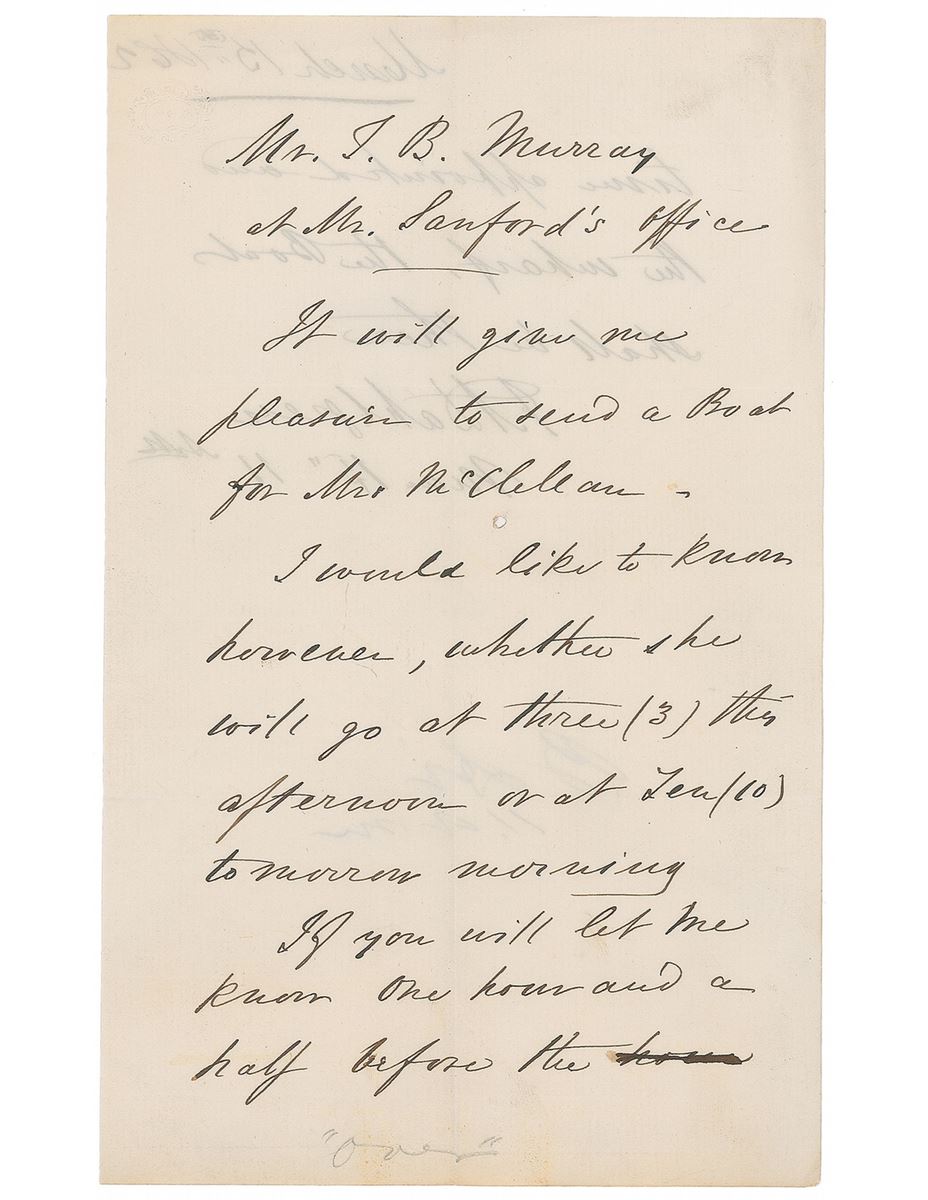 Mr. T. B. Murray
at Mr. Sanford's office
It will give me
pleasure to send a Boat
for Mrs McClellan -
I would like to know
however, whether she
will go at three (3) this
afternoon or at Ten (10)
tomorrow morning
If you will let me
know One hour and a
half before the hour
"Over"